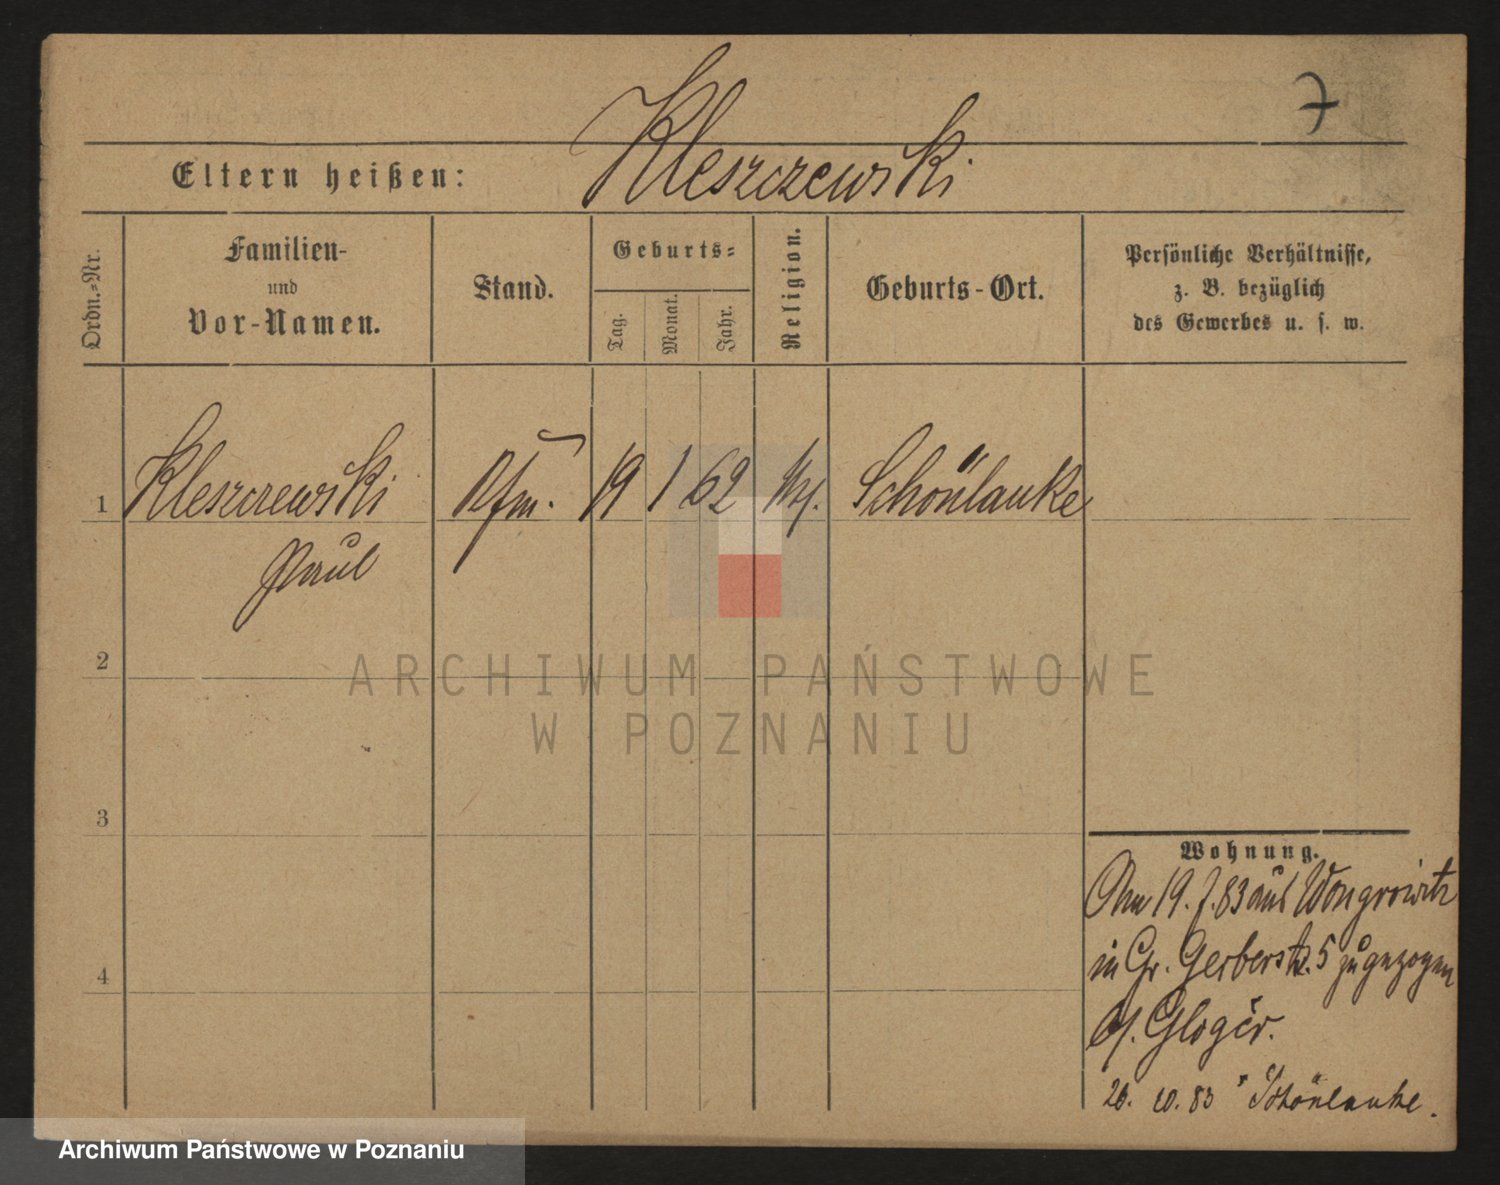 7
Kleszczewski
Eltern heißen:
Ordn.-Nr.
Familien-
und
Vor-Namen.
Stand.
Geburts-
Tag.
Monat.
Jahr.
Religion.
Geburts-Ort.
Persönliche Verhältnisse,
z. B. bezüglich
des Gewerbes u. s. w.
1 Kleszczewski Kfm. 19 1 62 Schönlanke
Paul
2
3
4
ARCHIWUM PAŃSTWOWE
W POZNANIU
Wohnung.
19. 7. 83 aus Wongrowitz
in Gr. Gerberstr. 5 zugezogen
b/.
26. 10. 83 Schönlanke.
Archiwum Państwowe w Poznaniu